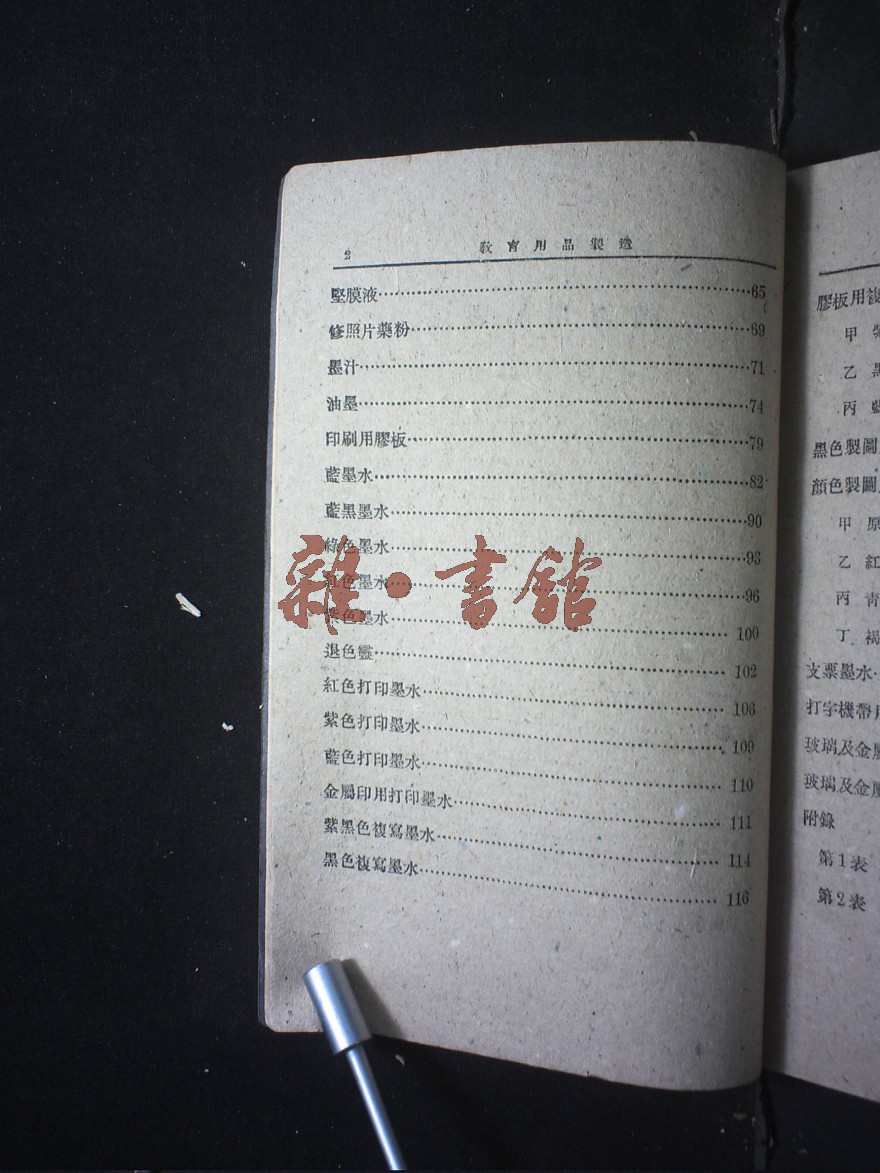 2 教育用品製造
堅膜液 65
修照片藥粉 69
墨汁 71
油墨 74
印刷用膠板 79
藍墨水 82
藍黑墨水 90
綠色墨水 93
紅色墨水 96
紫色墨水 100
退色靈 102
紅色打印墨水 106
紫色打印墨水 109
藍色打印墨水 110
金屬印用打印墨水 111
紫黑色複寫墨水 114
黑色複寫墨水 116
雜·書館
膠板用複
甲 紫
乙 黑
丙 藍
黑色製圖
顏色製圖
甲 原
乙 紅
丙 青
丁 褐
支票墨水
打字機帶用
玻璃及金屬
玻璃及金屬
附錄
第1表
第2表